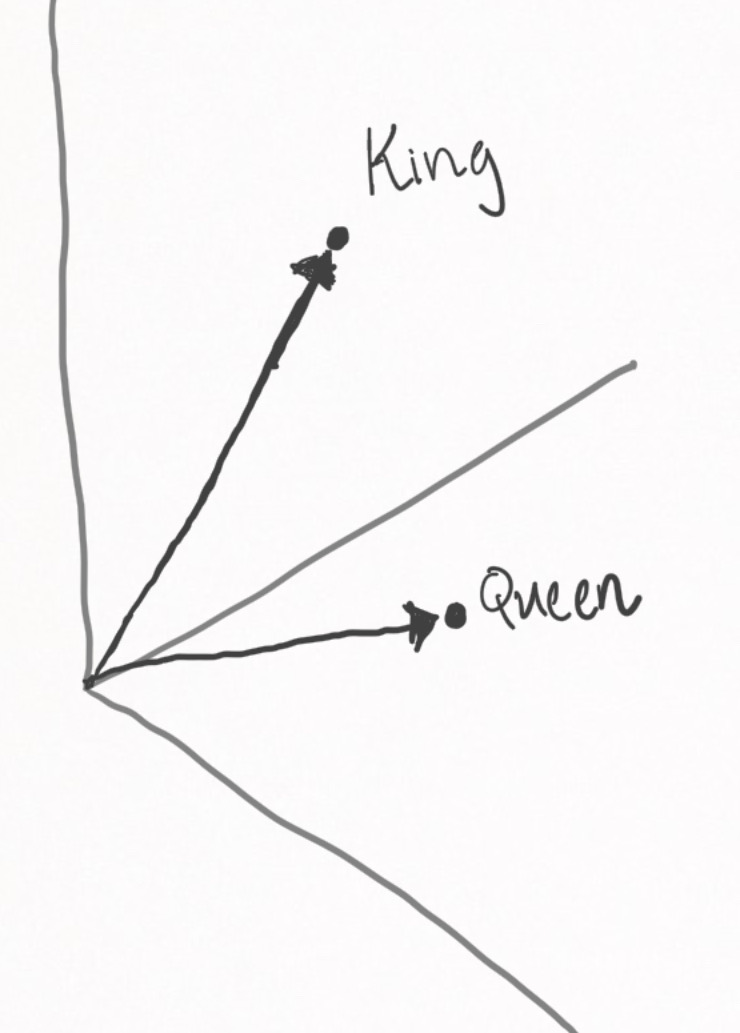 King
Queen